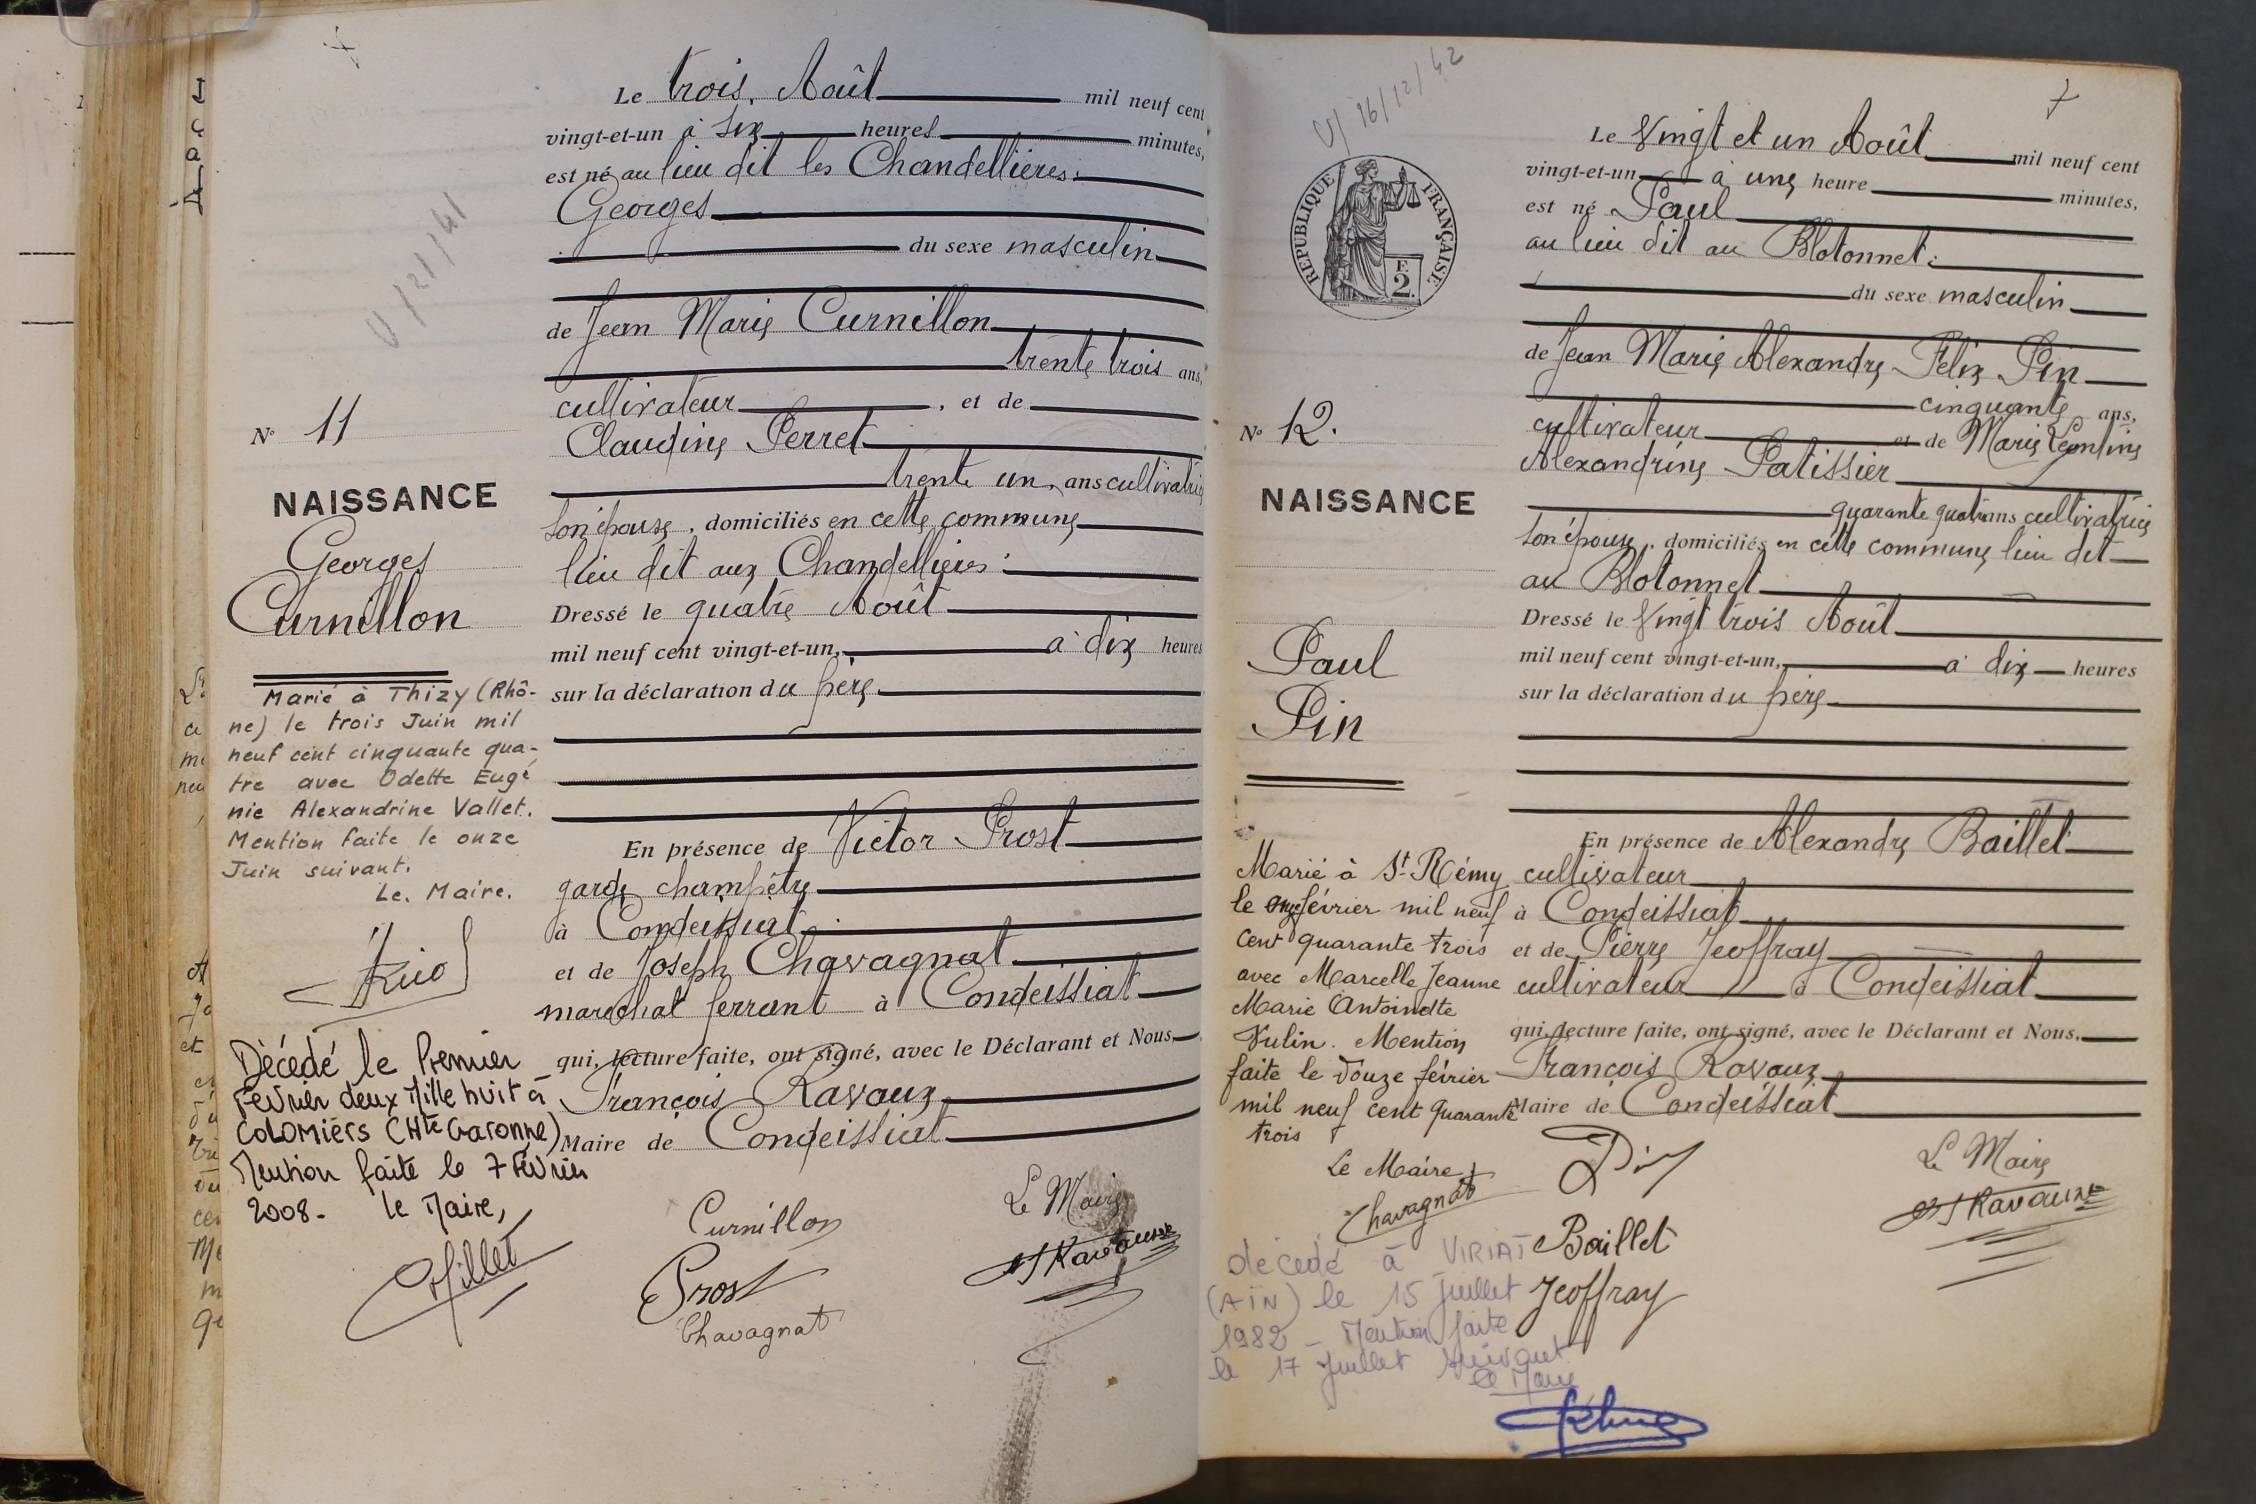 Le trois Août mil neuf cent
vingt-et-un à six heures minutes,
est né au lieu dit les Chandellières:
Georges
du sexe masculin
de Jean Marie Curnillon
trente trois ans,
cultivateur , et de
Claudine Perret
trente un ans cultivatrice
son épouse, domiciliés en cette commune
lieu dit aux Chandellières:
Dressé le quatre Août
mil neuf cent vingt-et-un, à dix heures
sur la déclaration du père
En présence de Victor Prost
garde champêtre
à Condeissiat
et de Joseph Chavagnat
maréchal ferrant à Condeissiat
qui, lecture faite, ont signé, avec le Déclarant et Nous,
François Ravaux
Maire de Condeissiat
Curnillon
Le Maire
Prost
Ravaux
Chavagnat
V/21/41
N° 11
NAISSANCE
Georges
Curnillon
Marié à Thizy (Rhô-
ne) le trois Juin mil
neuf cent cinquante qua-
tre avec Odette Eugé
nie Alexandrine Vallet.
Mention faite le onze
Juin suivant.
Le Maire.
Décédé le Premier
Février deux Mille huit à
COLOMIERS (Hte Garonne)
Mention faite le 7 Février
2008. le Maire,
V/ 16/12/42
7
RÉPUBLIQUE FRANÇAISE
F.
2
Le Vingt et un Août mil neuf cent
vingt-et-un à une heure minutes,
est né Paul
au lieu dit au Blotonnet:
du sexe masculin
de Jean Marie Alexandre Félix Pin
cinquante ans,
cultivateur et de Marie Léontine
Alexandrine Patissier
quarante quatre ans cultivatrice
son épouse, domiciliés en cette commune lieu dit
au Blotonnet
Dressé le Vingt trois Août
mil neuf cent vingt-et-un, à dix heures
sur la déclaration du père
En présence de Alexandre Baillet
cultivateur
à Condeissiat
et de Pierre Jeoffray
cultivateur à Condeissiat
qui, lecture faite, ont signé, avec le Déclarant et Nous,
François Ravaux
Maire de Condeissiat
Pin
Le Maire
Ravaux
Baillet
Jeoffray
N° 12.
NAISSANCE
Paul
Pin
Marié à St. Rémy
le onze février mil neuf
cent quarante trois
avec Marcelle Jeanne
Marie Antoinette
Vulin. Mention
faite le douze février
mil neuf cent quarante
trois
Le Maire
Chavagnat
décédé à VIRIAT
(AIN) le 15 juillet
1982 - Mention faite
le 17 juillet suivant
le Maire